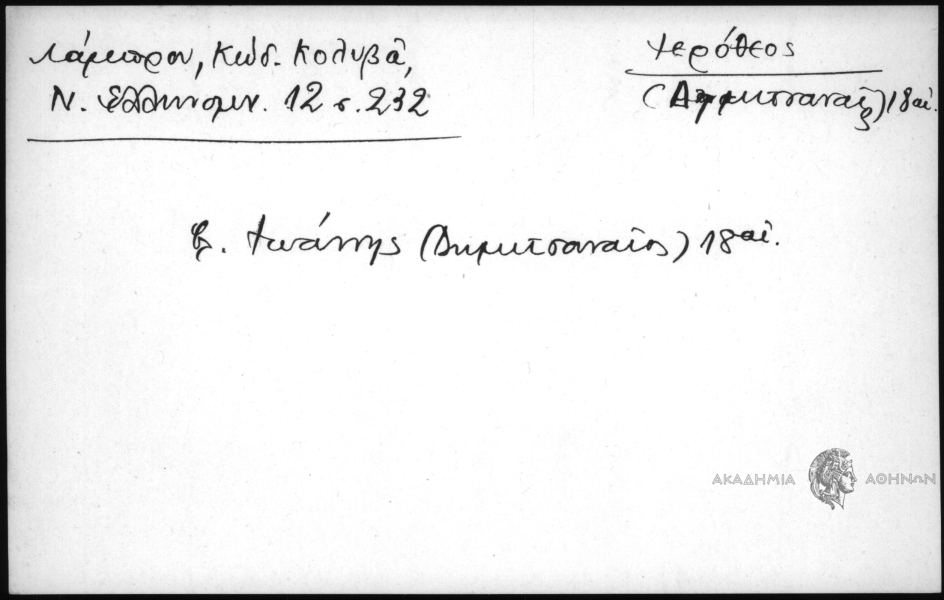 Λάμπρου, Κώδ. Κολυβᾶ,
Ν. Ἑλληνομν. 12 σ. 232
Ἱερόθεος
(Δημητσαναῖος) 18 αἰ.
βλ. Ἰωάννης (Δημητσαναῖος) 18 αἰ.
ΑΚΑΔΗΜΙΑ ΑΘΗΝΩΝ